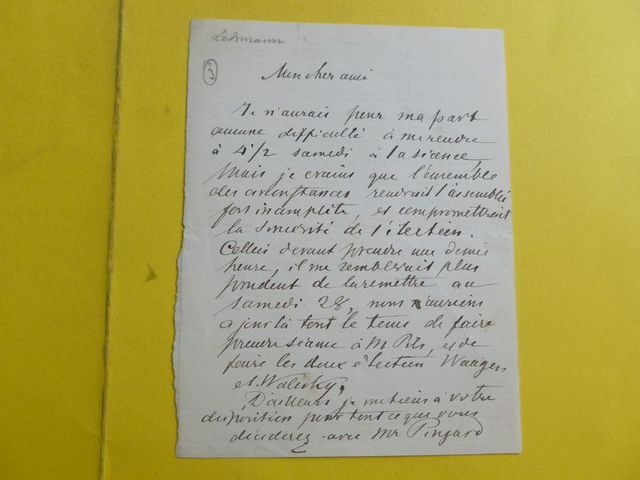 Lehmann
3
Mon cher ami
Je n'aurais pour ma part
aucune difficulté à me rendre
à 4 1/2 samedi à la séance,
Mais je crains que l'ensemble
des circonstances rendrait l'assemblée
fort incomplète, et compromettrait
la sincérité de l'élection.
Celleci devant prendre une demie
heure, il me semblerait plus
prudent de la remettre au
samedi 28, nous n'aurions
à jour là tout le tems de faire
prendre séance à M Pils, et de
faire les deux élection Waagen
et Walesky,
D'ailleurs je me tiens à votre
disposition pour tout ce que vous
déciderez avec Mr Pingard